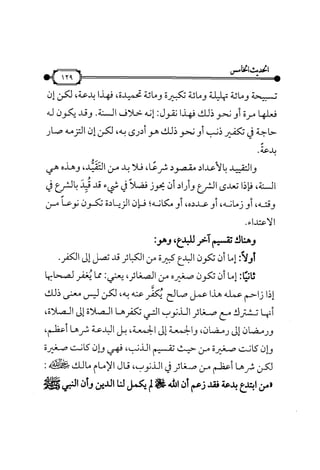 الحديث الخامس
١٢٩
تسبيحة ومائة تهليلة ومائة تكبيرة ومائة تحميدة، فهذا بدعة، لكن إن
فعلها مرة أو نحو ذلك فهذا نقول: إنه خلاف السنة. وقد يكون له
حاجة في تكفير ذنب أو نحو ذلك هو أدرى به، لكن إن التزمه صار
بدعةً.
والتقييد بالأعداد مقصود شرعًا، فلا بد من التَقَيُّد، وهذه هي
السنة، فإذا تعدى الشرع وأراد أن يحوز فضلاً في شيء قد قُيِّدَ بالشرع في
وقته، أو زمانه، أو عدده، أو مكانه؛ فإن الزيادة تكون نوعاً من
الاعتداء.
وهناك تقسيم آخر للبدع، وهو:
أولاً: إما أن تكون البدع كبيرة من الكبائر قد تصل إلى الكفر.
ثانيًا: إما أن تكون صغيره من الصغائر، يعني: مما يُغفر لصحابها
إذا زاحم عمله هذا عمل صالح يُكفَّر عنه به، لكن ليس معنى ذلك
أنها تشترك مع صغائر الذنوب التي تكفرها الصلاة إلى الصلاة،
ورمضان إلى رمضان، والجمعة إلى الجمعة، بل البدعة شرها أعظم،
وإن كانت صغيرة من حيث تقسيم الذنب، فهي وإن كانت صغيرة
لكن شرها أعظم من صغائر في الذنوب، قال الإمام مالك ﷺ:
«من ابتدع بدعة فقد زعم أن الله ﷻ لم يكمل لنا الدين وأن النبي ﷺ